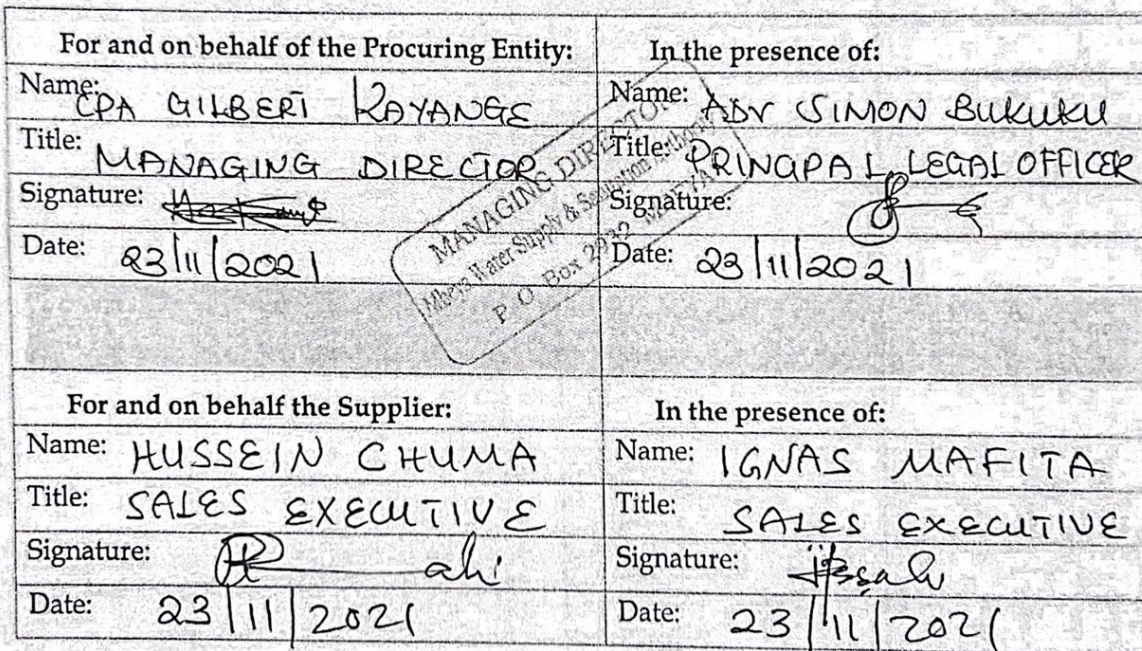 For and on behalf of the Procuring Entity:
In the presence of:
Name: CPA GILBERT KAYANGE
Name: ADV SIMON BUKUKU
Title: MANAGING DIRECTOR
Title: PRINCIPAL LEGAL OFFICER
Signature:
Signature:
Date: 23/11/2021
Date: 23/11/2021
MANAGING DIRECTOR
Mbeya Water Supply & Sanitation Authority
P. O. Box 2932 MBEYA
For and on behalf the Supplier:
In the presence of:
Name: HUSSEIN CHUMA
Name: IGNAS MAFITA
Title: SALES EXECUTIVE
Title: SALES EXECUTIVE
Signature:
Signature:
Date: 23/11/2021
Date: 23/11/2021